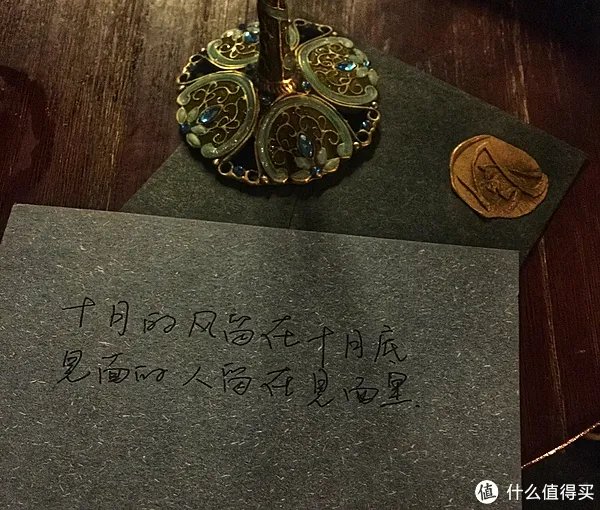 十月的风留在十月底
見面的人留在見面里.
值 什么值得买